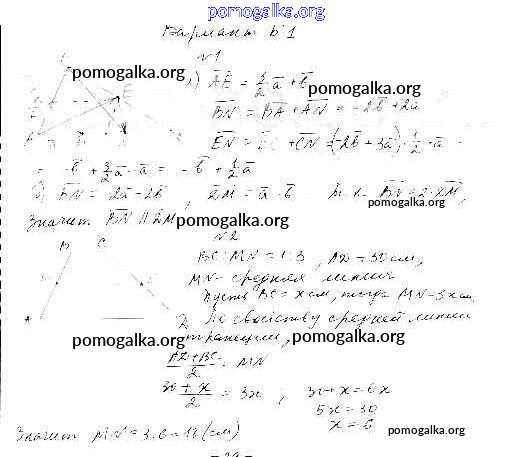 pomogalka.org
Вариант Б1
№1
pomogalka.org
а) AE = 3/2 a + b
pomogalka.org
BN = BA + AN = -2b + 2a
EN = EC + CN = (-2b + 3a) · 1/2 - a =
= -b + 3/2 a - a = -b + 1/2 a
б) BN = 2a - 2b, = a - b Т.к. BN = 2·
pomogalka.org
Значит BN ||
pomogalka.org
№2
B C
BC : MN = 1:3, AD = 30 см,
MN - средняя линия
Пусть BC = x см, тогда MN - 3x см
pomogalka.org
A D
По свойству средней линии
трапеции,
pomogalka.org
AD + BC / 2 = MN
30 + x / 2 = 3x ; 30 + x = 6x
5x = 30
x = 6
pomogalka.org
Значит MN = 3·6 = 18 (см)